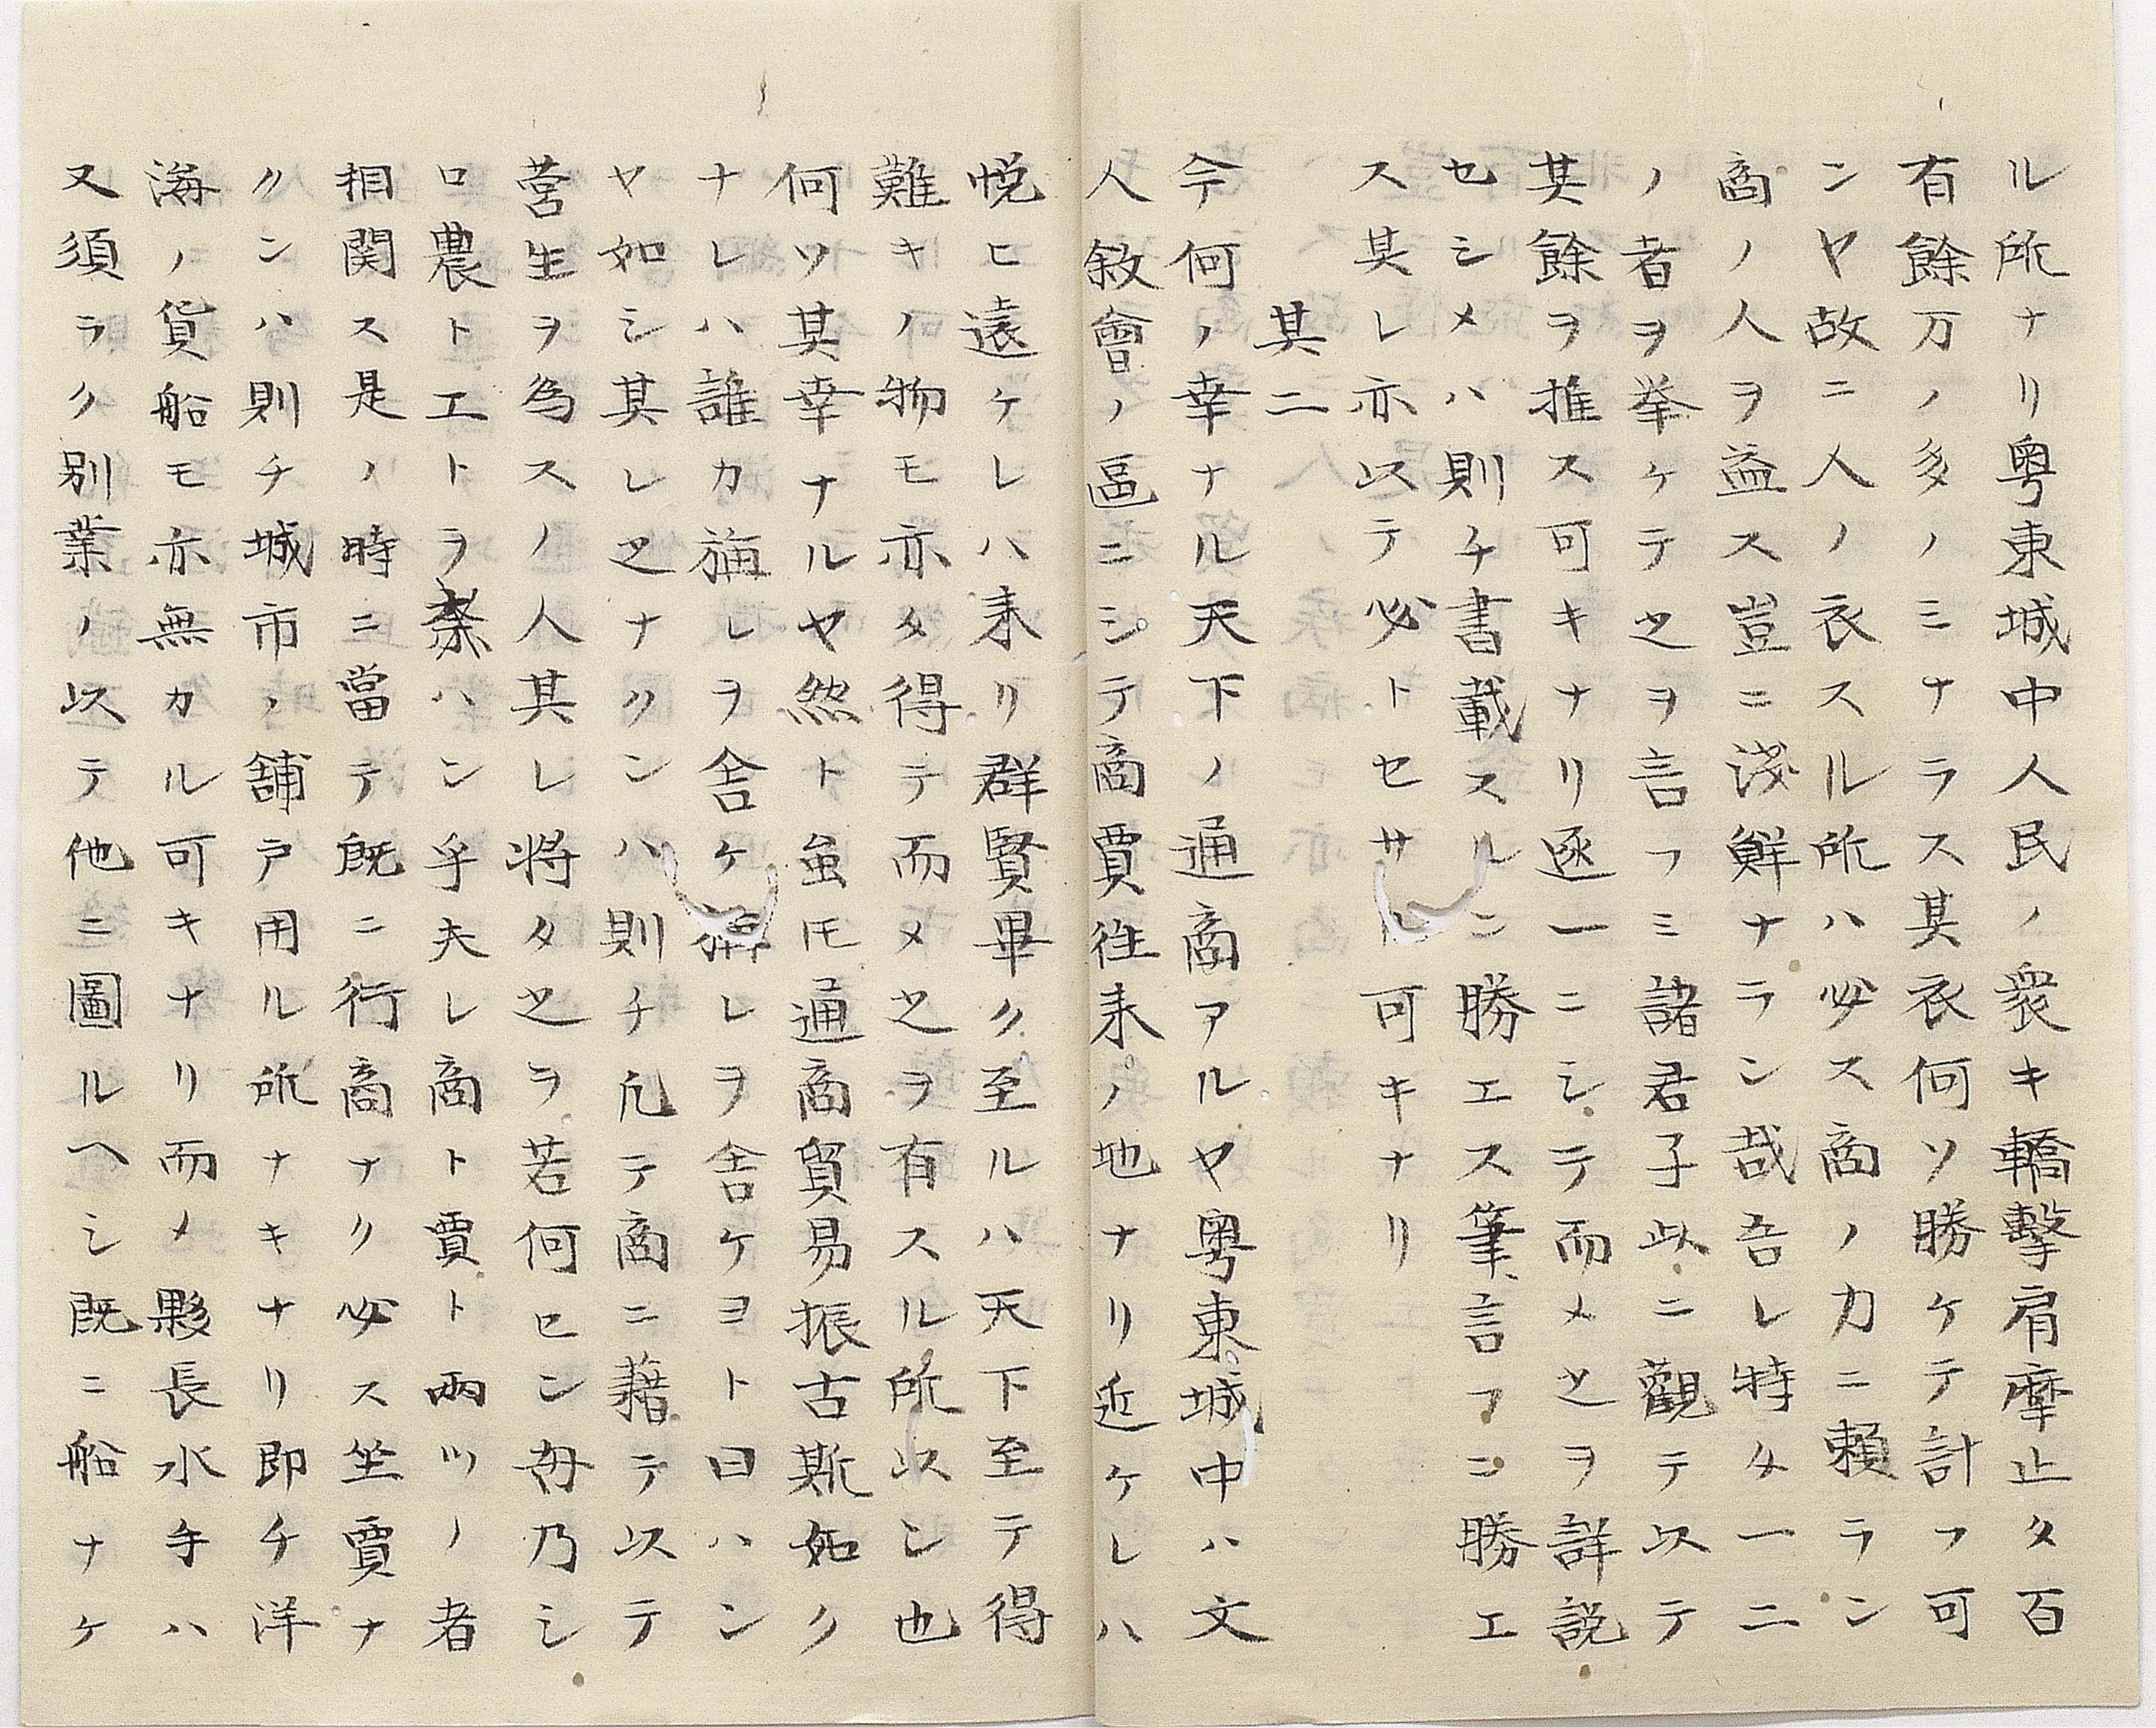 ル所ナリ粤東城中人民ノ衆キ轎擊肩摩止タ百
有餘万ノ多ノミナラス其衣何ソ勝ケテ計フ可
ンヤ故ニ人ノ衣スル所ハ必ス商ノ力ニ賴ラン
商ノ人ヲ益ス豈ニ淺鮮ナラン哉吾レ特タ一二
ノ者ヲ挙ケテ之ヲ言フミ諸君子此ニ觀テ以テ
其餘ヲ推ス可キナリ逐一ニシテ而メ之ヲ詳説
セシメハ則チ書載スルニ勝エス筆言フニ勝エ
ス其レ亦以テ必トセサル可キナリ
其二
今何ノ幸ナル天下ノ通商アルヤ粤東城中ハ文
人敘會ノ區ニシテ商賈往来ノ地ナリ近ケレハ
悦ヒ遠ケレハ来リ群賢畢ク至ルハ天下至テ得
難キノ物モ亦タ得テ而メ之ヲ有スル所以ン也
何ソ其幸ナルヤ然ト虽モ通商貿易振古斯如ク
ナレハ誰カ旃レヲ舎ケ旃レヲ舎ケヨト曰ハン
ヤ如シ其レ之ナクンハ則チ凢テ商ニ藉テ以テ
営生ヲ為スノ人其レ将タ之ヲ若何セン毋乃シ
ロ農ト工トヲ棄ハン乎夫レ商ト賈ト兩ツノ者
相関ス是ノ時ニ當テ既ニ行商ナク必ス坐賈ナ
クンハ則チ城市ノ舗戸用ル所ナキナリ即チ洋
海ノ貨船モ亦無カル可キナリ而メ夥長水手ハ
又須ラク別業ノ以テ他ニ圖ルヘシ既ニ船ナケ